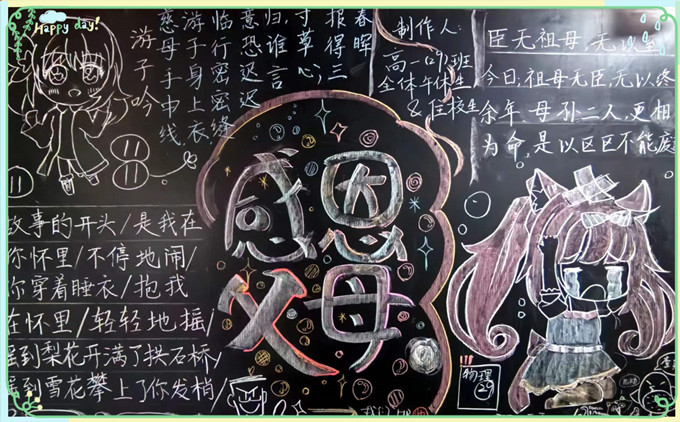 Happy day!
游子吟
慈母手中线,
游子身上衣
临行密密缝
意恐迟迟
归,谁言
寸草心,
报得三
春晖
制作人:
高一(29)班
全体午休生
&住校生
臣无祖母,无以至
今日;祖母无臣,无以终
余年.母孙二人,更相
为命,是以区区不能废
感恩
父母
故事的开头/是我在
你怀里/不停地闹/
你穿着睡衣/抱我
在怀里/轻轻地摇/
摇到梨花开满了拱石桥/
摇到雪花攀上了你发梢/
物理
29